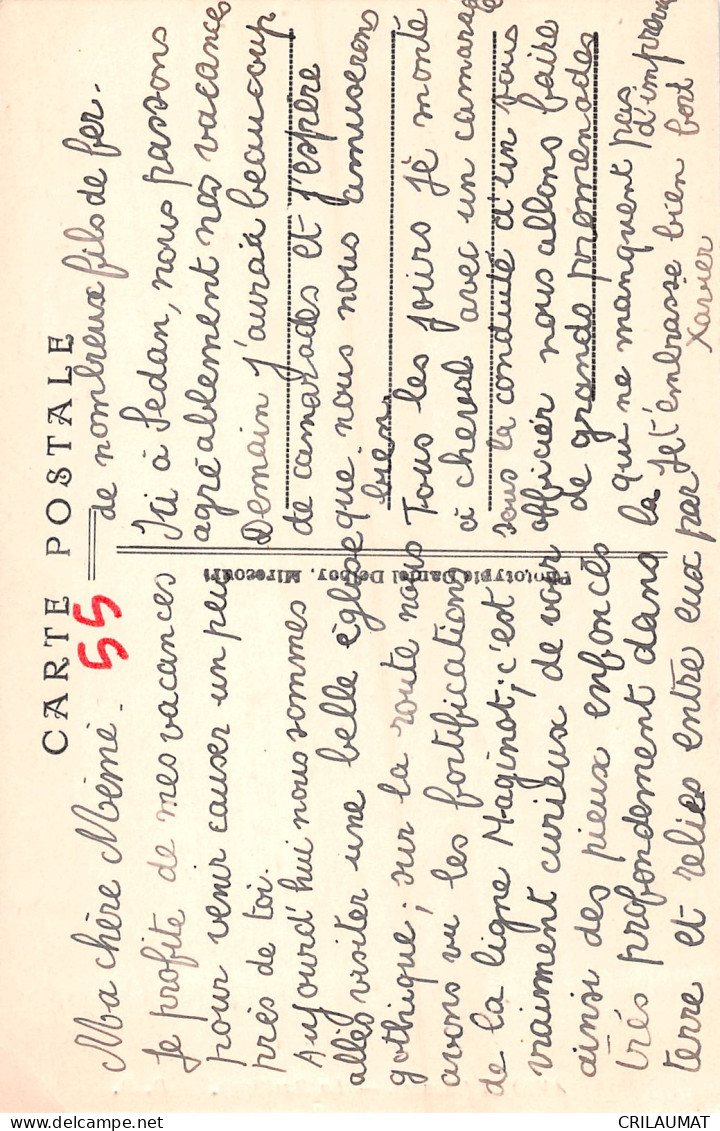 CARTE POSTALE
55
Ma chère Mémé.
Je profite de mes vacances
pour venir causer un peu
près de toi.
Aujourd'hui nous sommes
allés visiter une belle église
gothique ; sur la route nous
avons vu les fortifications
de la ligne Maginot ; c'est
vraiment curieux de voir
ainsi des pieux enfoncés
très profondément dans la
terre et reliés entre eux par
de nombreux fils de fer.
Ici à Sedan, nous passons
agréablement nos vacances
Demain j'aurai beaucoup
de camarades et j'espère
que nous nous amuserons
bien.
Tous les jours je monte
à cheval avec un camarade
sous la conduite d'un sous
officier nous allons faire
de grands promenades
qui ne manquent pas d'imprévu
Je t'embrasse bien fort
Xavier
Phototypie Daniel Delboy, Mirecourt
CRILAUMAT